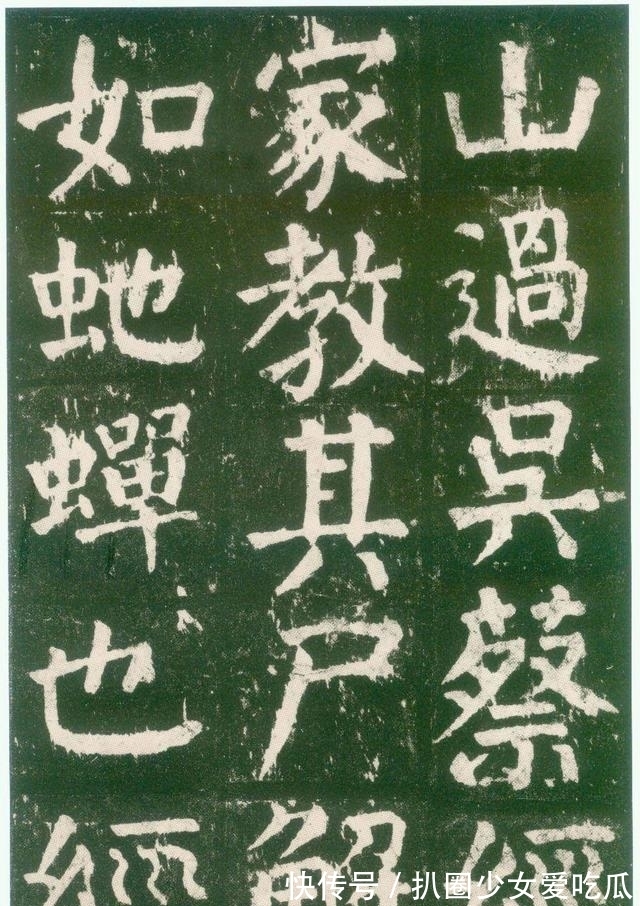 山過吳蔡經
家教其尸解
如虵蟬也經
快传号/扒圈少女爱吃瓜